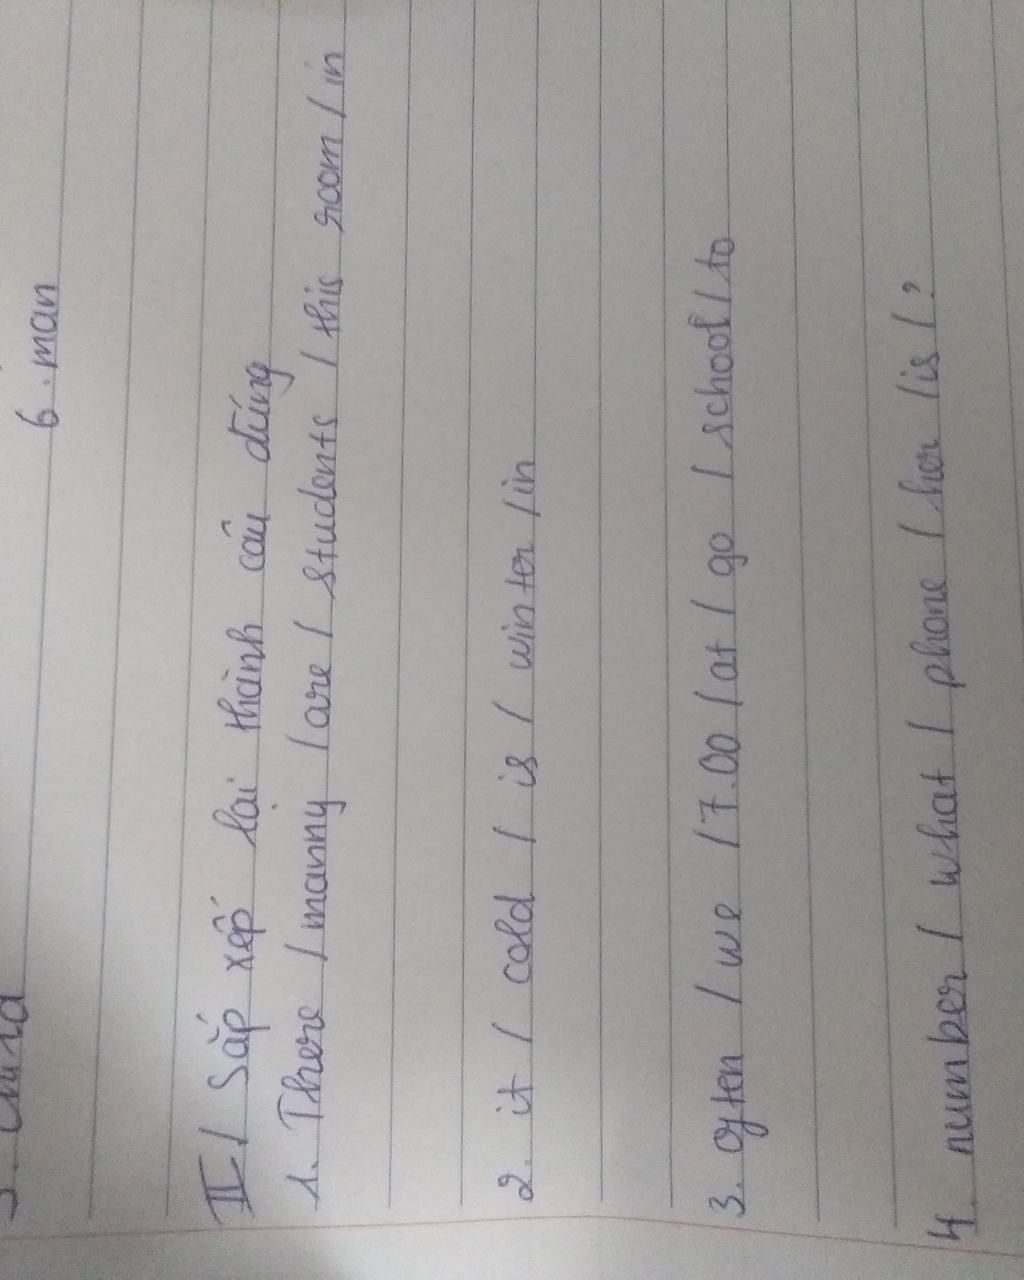 6. man
II/ Sắp xếp lại thành câu đúng
1. There / manny / are / students / this room / in
2. it / cold / is / winter / in
3. often / we / 7.00 / at / go / school / to
4. number / what / phone / her / is / ?